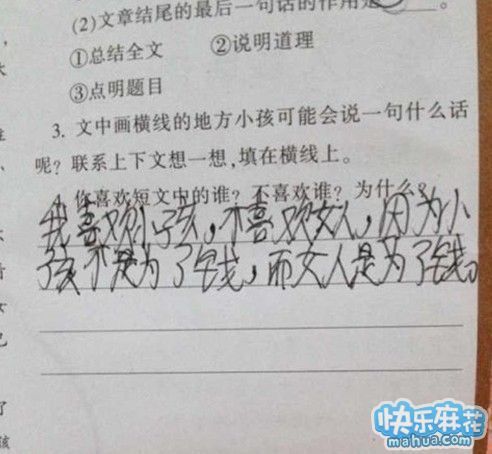 (2)文章结尾的最后一句话的作用是____。
①总结全文 ②说明道理
③点明题目
3. 文中画横线的地方小孩可能会说一句什么话
呢?联系上下文想一想,填在横线上。
4. 你喜欢短文中的谁?不喜欢谁?为什么?
我喜欢小孩,不喜欢女人,因为小
孩不是为了钱,而女人是为了钱。
快乐麻花
mahua.com